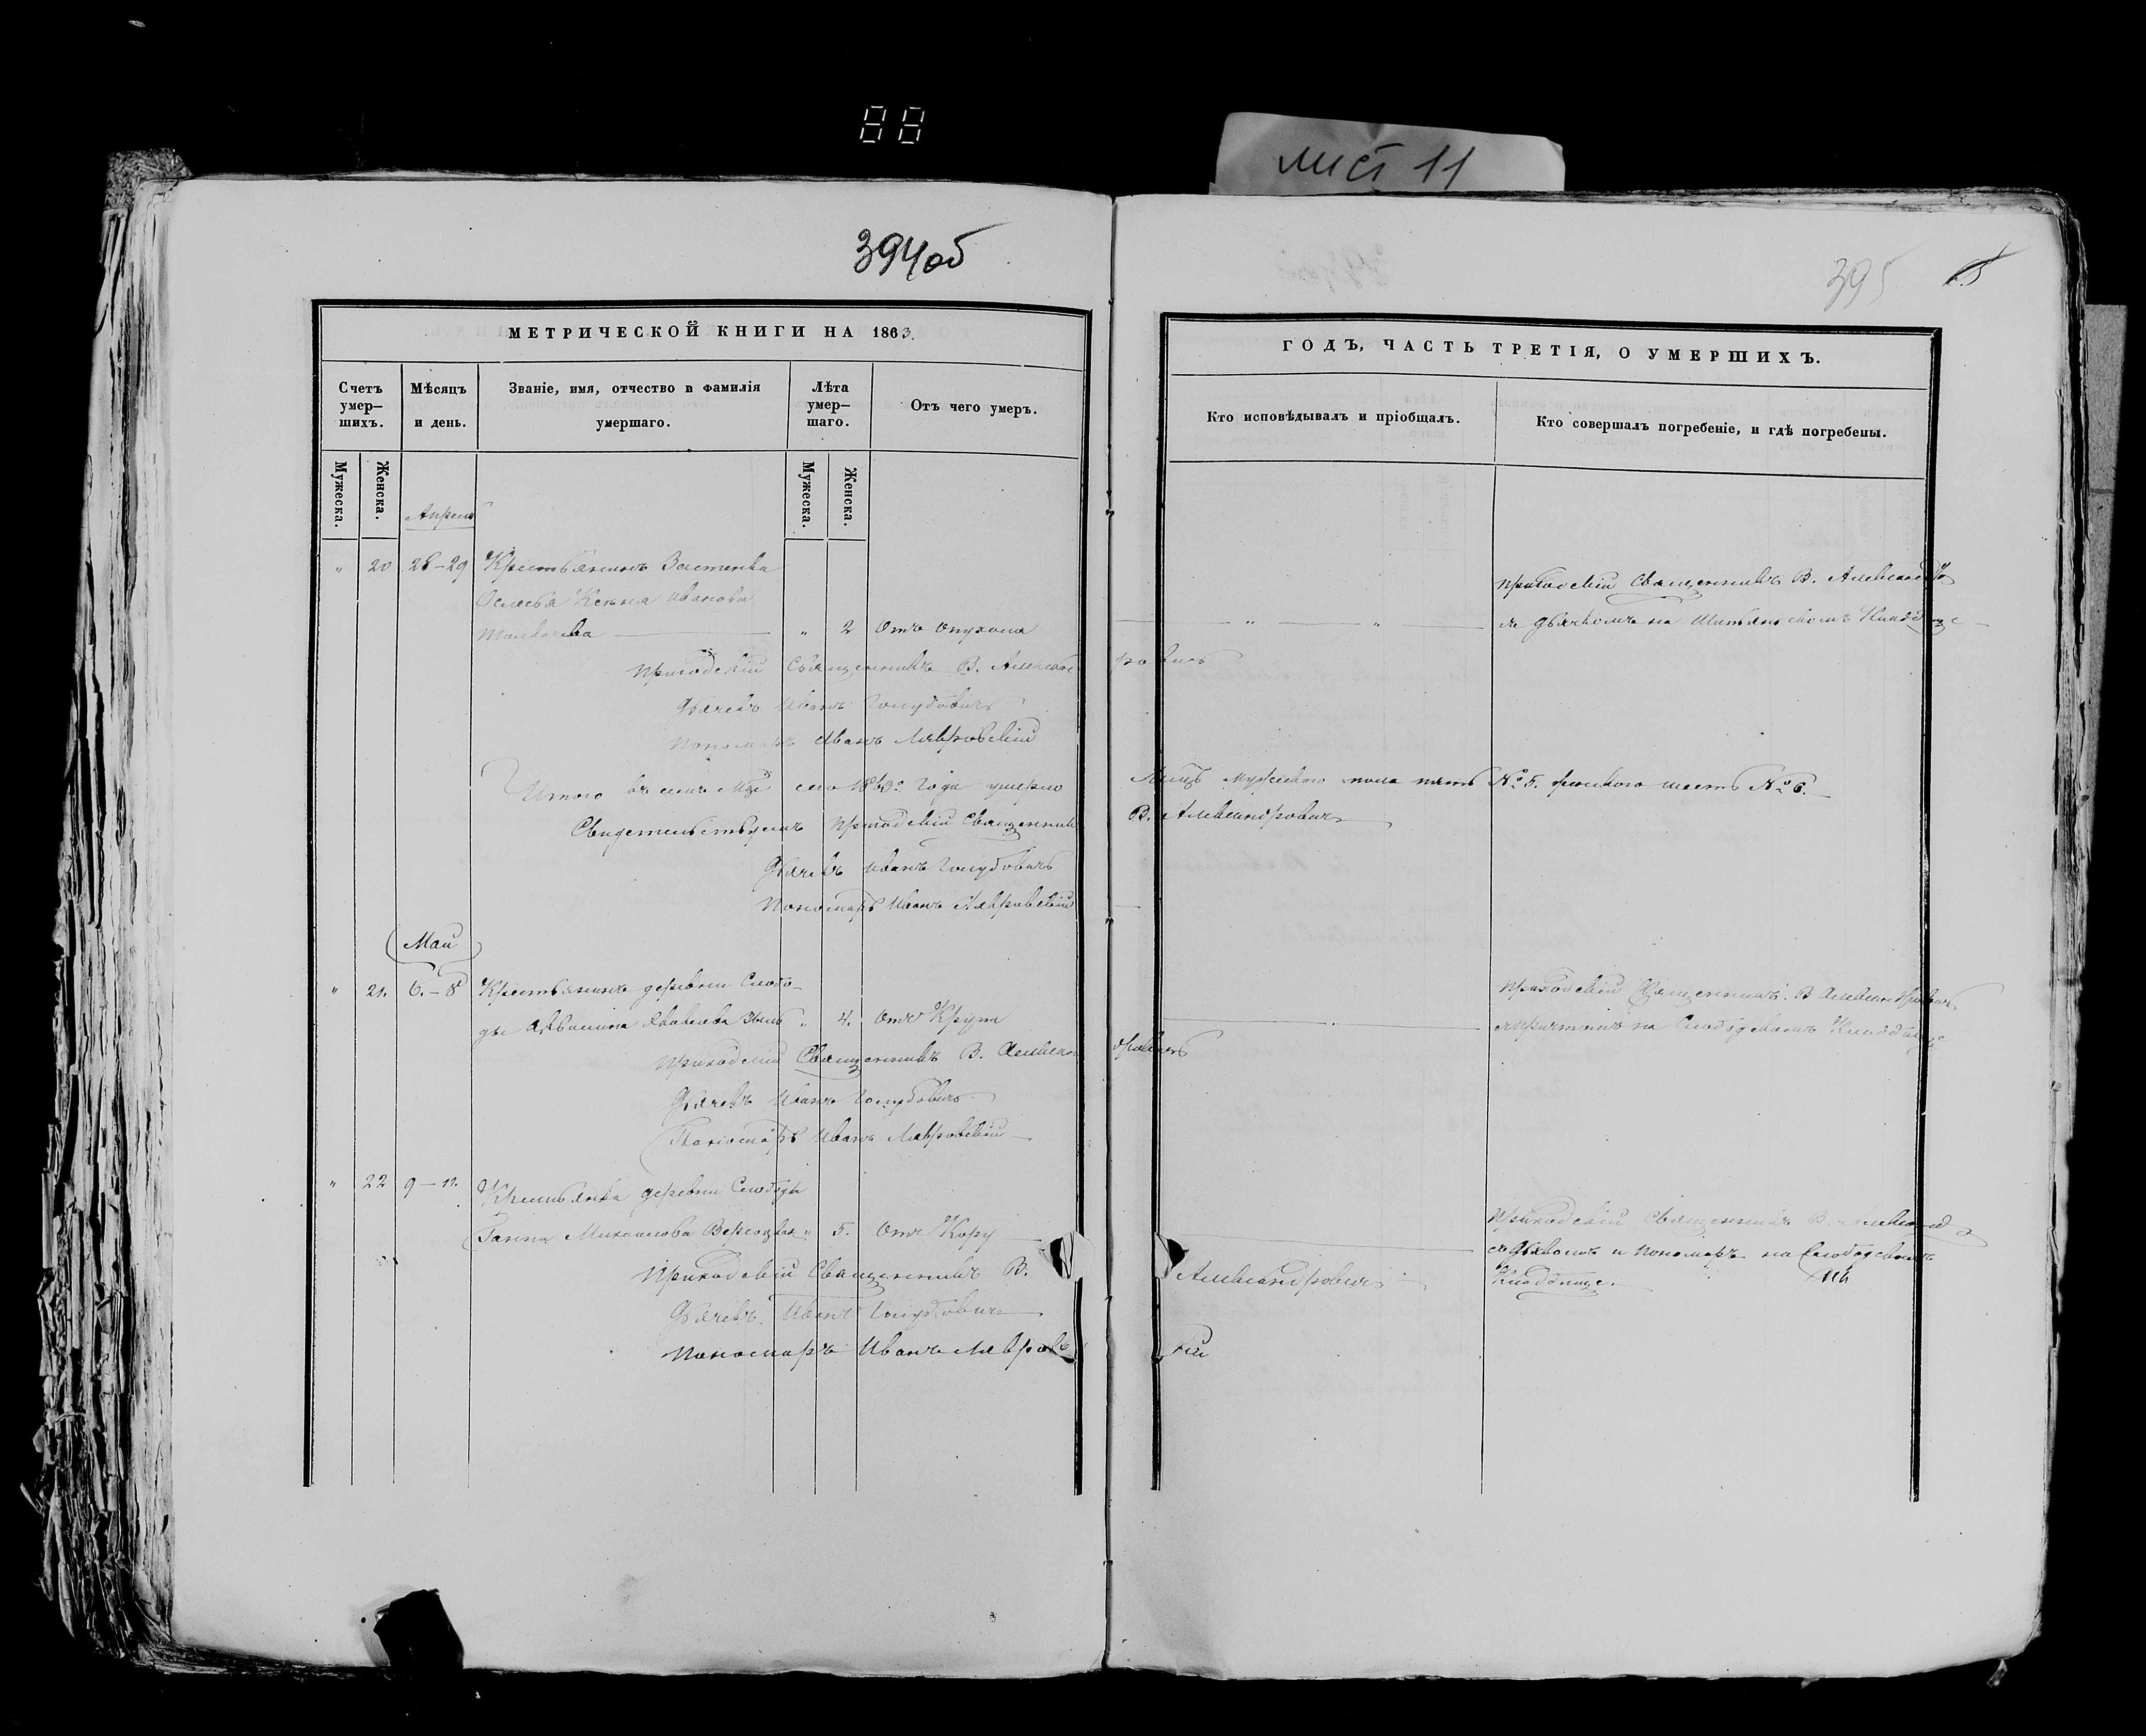 88
лист 11
394об
395
МЕТРИЧЕСКОЙ КНИГИ НА 1863.
ГОДЪ, ЧАСТЬ ТРЕТІЯ, О УМЕРШИХЪ.
Счетъ умер—шихъ.
Мѣсяцъ и день.
Званіе, имя, отчество и фамилія умершаго.
Лѣта умер—шаго.
Отъ чего умеръ.
Кто исповѣдывалъ и пріобщалъ.
Кто совершалъ погребеніе, и гдѣ погребены.
Мужеска.
Женска.
Мужеска.
Женска.
Апрель
" 20 28–29 Крестьянинъ Застенка
Иванова
" 2 Отъ опухоли
Приходскій Священникъ В. Александ
съ Дьячкомъ на Кладбище
Приходскій Священникъ В. Александ ровичъ
Дьячекъ Иванъ Голубовичъ
Пономарь Иванъ Лавровскій
Итого въ семъ Мцѣ сего 1863го года умерло Лицъ мужескаго пола пять № 5. женскаго шесть № 6.
Приходскій Священникъ В. Александровичъ
Дьячекъ Иванъ Голубовичъ
Пономарь Иванъ Лавровскій
Май
" 21. 6.–8 Крестьянинъ деревни Слобо-
ды " 4. Отъ Крупа
Приходскій Священникъ В. Александровичъ
съ причтомъ на Слободскомъ Кладбище
Приходскій Священникъ В. Александровичъ
Дьячекъ Иванъ Голубовичъ
Пономарь Иванъ Лавровскій
" 22 9–11. Крестьянка деревни Слободы
Ганна Михаилова " 5. Отъ Кору
Приходскій Священникъ В. Александ
съ Дьякомъ и Пономаръ на Слободскомъ
Кладбище.
Приходскій Священникъ В. Александровичъ
Дьячекъ Иванъ Голубовичъ
Пономаръ Иванъ Лавровскій